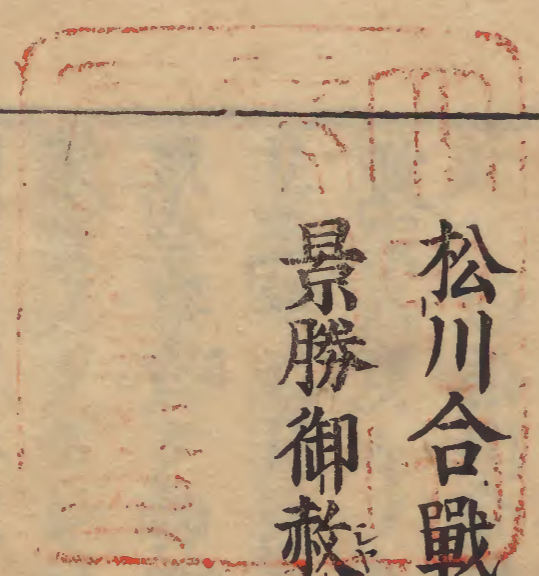 松川合戰
景勝御赦シヤ